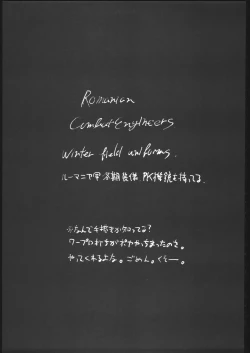 Romanian
Combat engineers
Winter field uniforms.
ルーマニア軍 冬期装備 PK機銃を持ってる.
※なんで手描きか知ってる?
ワープロの打ちがボヤけちまったのさ。
やってくれるよな。ごめん。くそー。